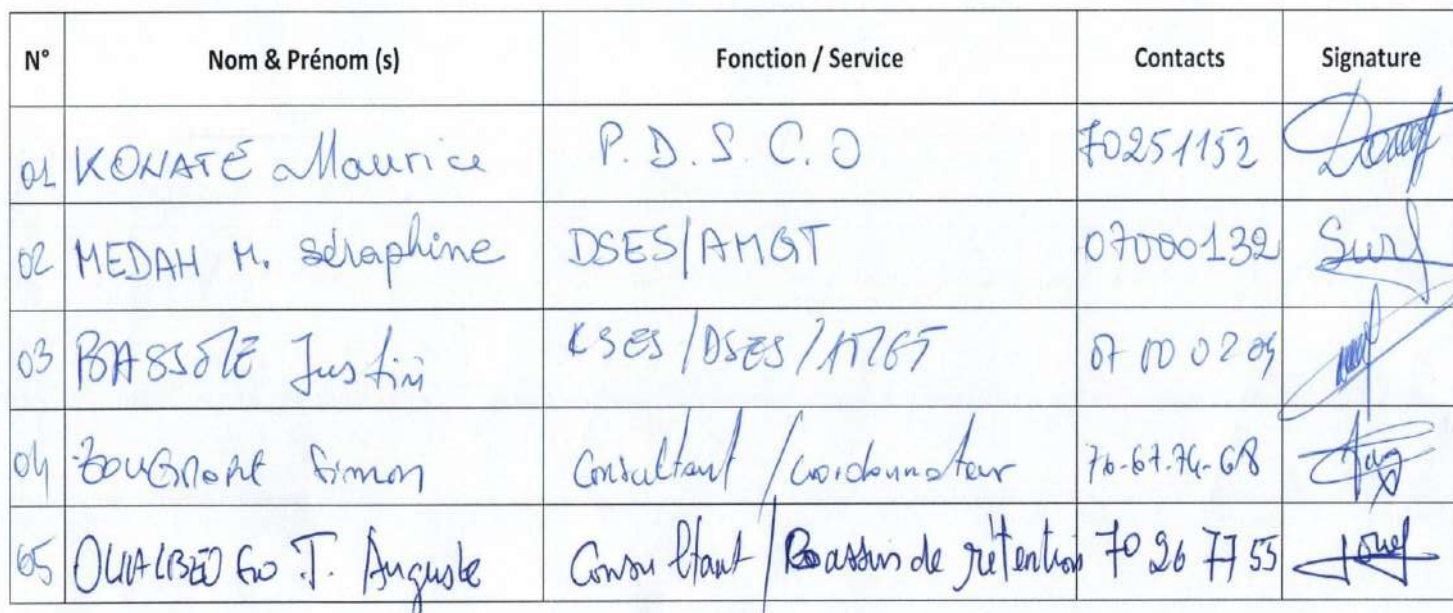 N° Nom & Prénom (s) Fonction / Service Contacts Signature
01 KONATÉ Maurice P.D.S.C.O 70251152
02 MEDAH M. Séraphine DSES/AMGT 07000132
03 BASSOLE Justin DSES/AMGT
04 Simon Consultant / Coordonnateur 76-67-74-68
05 OUALIBEOGO T. Auguste Consultant / Bassin de rétention 70 26 77 55